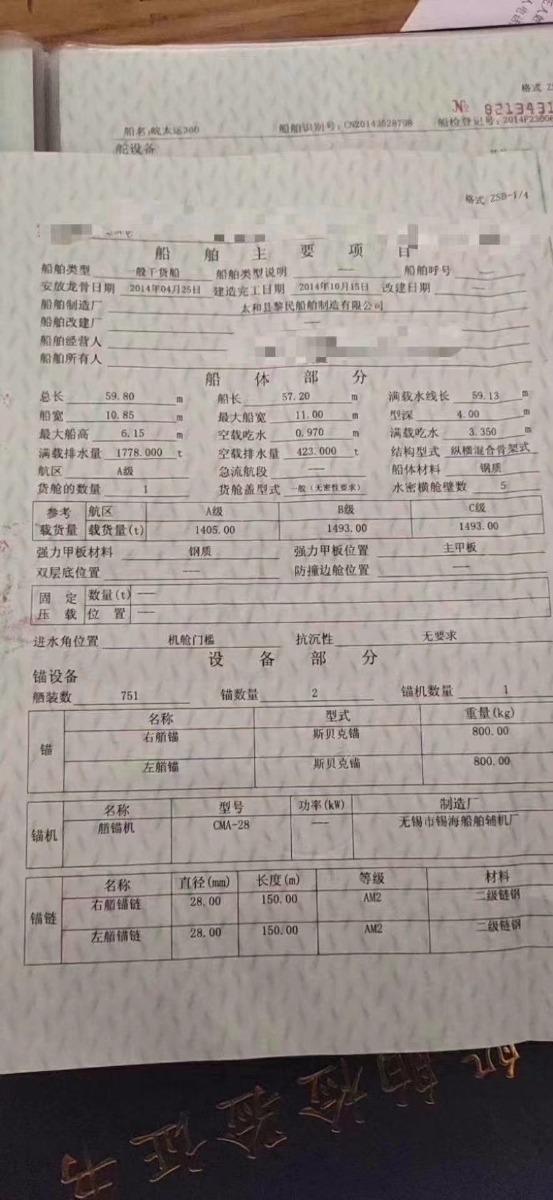 格式 Z
№ 8213431
船名:皖太运360 船舶识别号:CN20143528798 船检登记号:
舵设备
格式 ZSB-1/4
船舶主要项目
船舶类型 一般干货船 船舶类型说明 —— 船舶呼号 ——
安放龙骨日期 2014年04月25日 建造完工日期 2014年10月15日 改建日期 ——
船舶制造厂 太和县黎民船舶制造有限公司
船舶改建厂 ——
船舶经营人
船舶所有人
船体部分
总长 59.80 m 船长 57.20 m 满载水线长 59.13 m
船宽 10.85 m 最大船宽 11.00 m 型深 4.00 m
最大船高 6.15 m 空载吃水 0.970 m 满载吃水 3.350 m
满载排水量 1778.000 t 空载排水量 423.000 t 结构型式 纵横混合骨架式
航区 A级 急流航段 —— 船体材料 钢质
货舱的数量 1 货舱盖型式 一般(无密性要求) 水密横舱壁数 5
参考 航区 A级 B级 C级
载货量 载货量(t) 1405.00 1493.00 1493.00
强力甲板材料 钢质 强力甲板位置 主甲板
双层底位置 —— 防撞边舱位置 ——
固定 数量(t) ——
压载 位置 ——
进水角位置 机舱门槛 抗沉性 无要求
设备部分
锚设备
舾装数 751 锚数量 2 锚机数量 1
锚 名称 型式 重量(kg)
右艏锚 斯贝克锚 800.00
左艏锚 斯贝克锚 800.00
锚机 名称 型号 功率(kW) 制造厂
艏锚机 CMA-28 —— 无锡市锡海船舶辅机厂
锚链 名称 直径(mm) 长度(m) 等级 材料
右艏锚链 28.00 150.00 AM2 二级链钢
左艏锚链 28.00 150.00 AM2 二级链钢
船舶检验证书